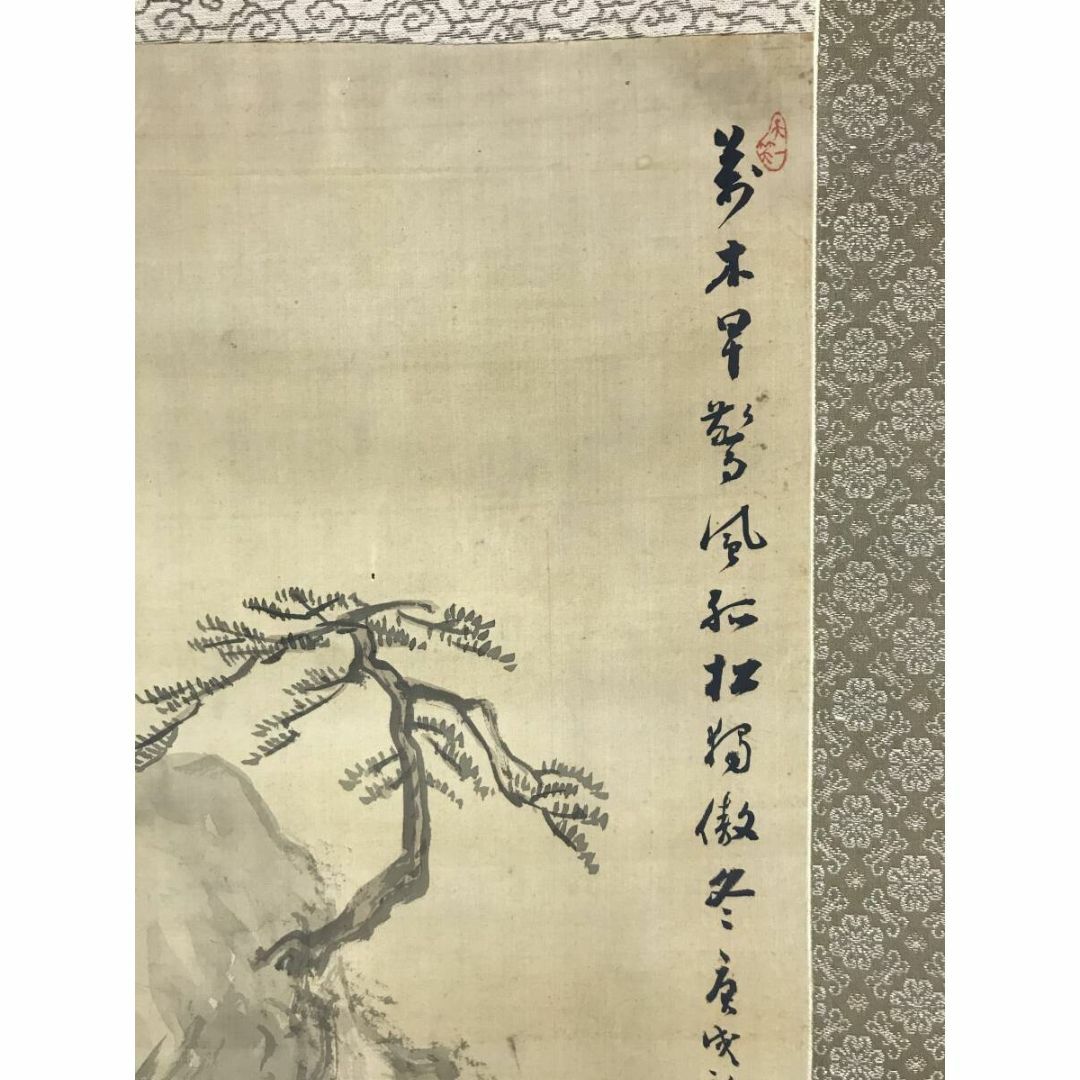 萬木早驚風孤松獨傲冬庚戌